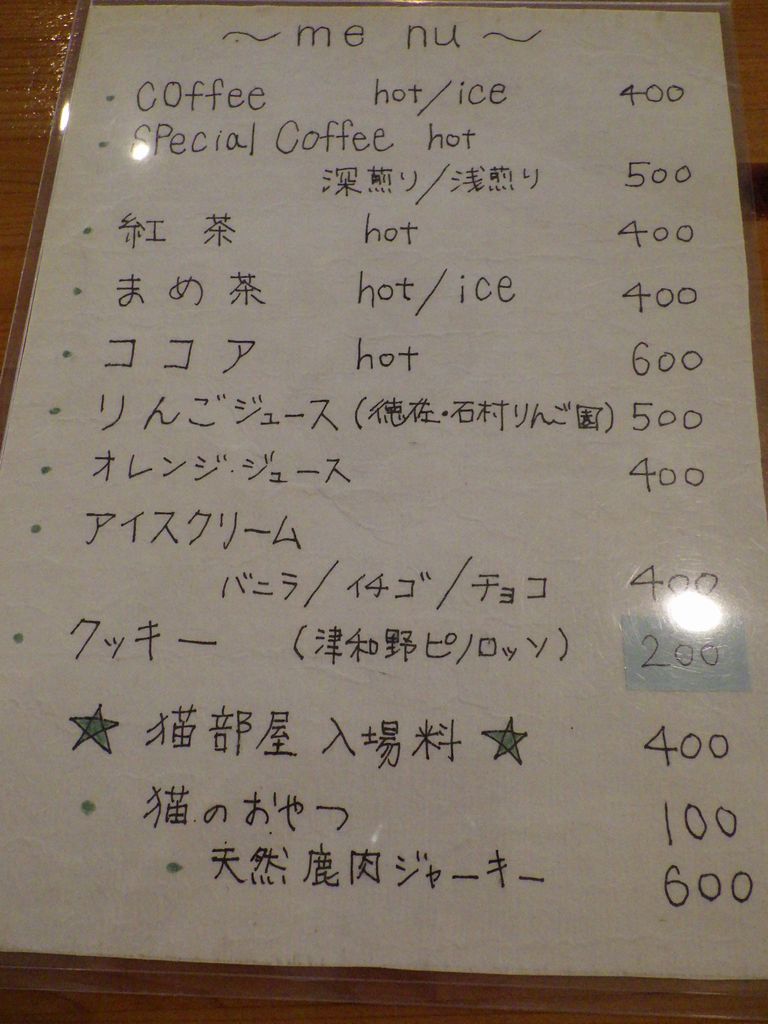 ～menu～
・Coffee hot/ice 400
・Special Coffee hot
深煎り/浅煎り 500
・紅茶 hot 400
・まめ茶 hot/ice 400
・ココア hot 600
・りんごジュース(徳佐・石村りんご園) 500
・オレンジ・ジュース 400
・アイスクリーム
バニラ/イチゴ/チョコ 400
・クッキー (津和野ピノロッソ) 200
☆猫部屋 入場料☆ 400
・猫のおやつ 100
・天然鹿肉ジャーキー 600